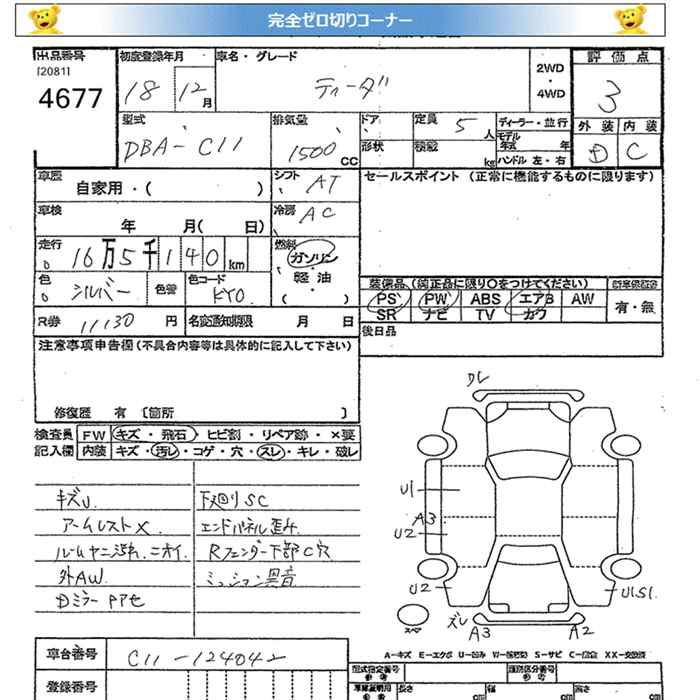 完全ゼロ切りコーナー
出品番号 初度登録年月 車名・グレード 2WD ・ 4WD 評価点
(2081)
4677 18 12月 ティーダ 3
型式 排気量 ドア 定員 5人 ディーラー・並行 外装 内装
DBA-C11 1500CC 形状 積載 kg モデル年式 年 D C
ハンドル 左・右
車歴 自家用・( ) シフト AT セールスポイント (正常に機能するものに限ります)
車検 年 月( 日) 冷房 AC
走行 16万5千140km 燃料 ガソリン
軽油・
( )
色 シルバー 色替 色コード KY0 装備品 (純正品に限り○をつけてください)
PS PW ABS エアB AW 有・無
SR ナビ TV カワ
R券 11,130円 名変通知期限 月 日 後日品
注意事項申告欄(不具合内容等は具体的に記入して下さい)
修復歴 有 [箇所 ]
検査員 FW キズ・飛石 ヒビ割・リペア跡・×要
記入欄 内装 キズ・汚レ・コゲ・穴・スレ・キレ・破レ
キズU 下廻りSC
アームレストX エンドパネル歪み
ルームヤニ汚れ、ニオイ Rフェンダー下部C穴
外AW ミッション異音
Dミラー PP色
ズレ
U1
A3
U2
U2 U1S1
スペア ズレ A3 A2
A-キズ E-エクボ U-凹み S-サビ C-腐食 XX-交換済
車台番号 C11-124042
登録番号
型式指定番号 類別区分番号
長さ cm 幅 cm 高さ cm